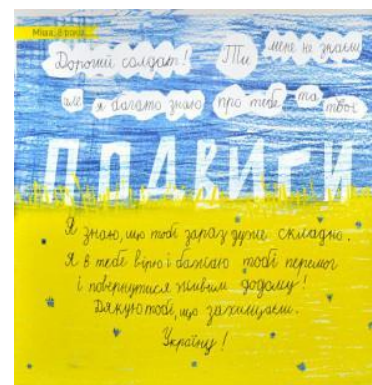 Міша, 8 років
Дорогий солдат! Ти мене не знаєш
але я багато знаю про тебе та твої
ПОДВИГИ
Я знаю, що тобі зараз дуже складно.
Я в тебе вірю і бажаю тобі перемог
і повернутися живим додому!
Дякую тобі, що захищаєш.
Україну!